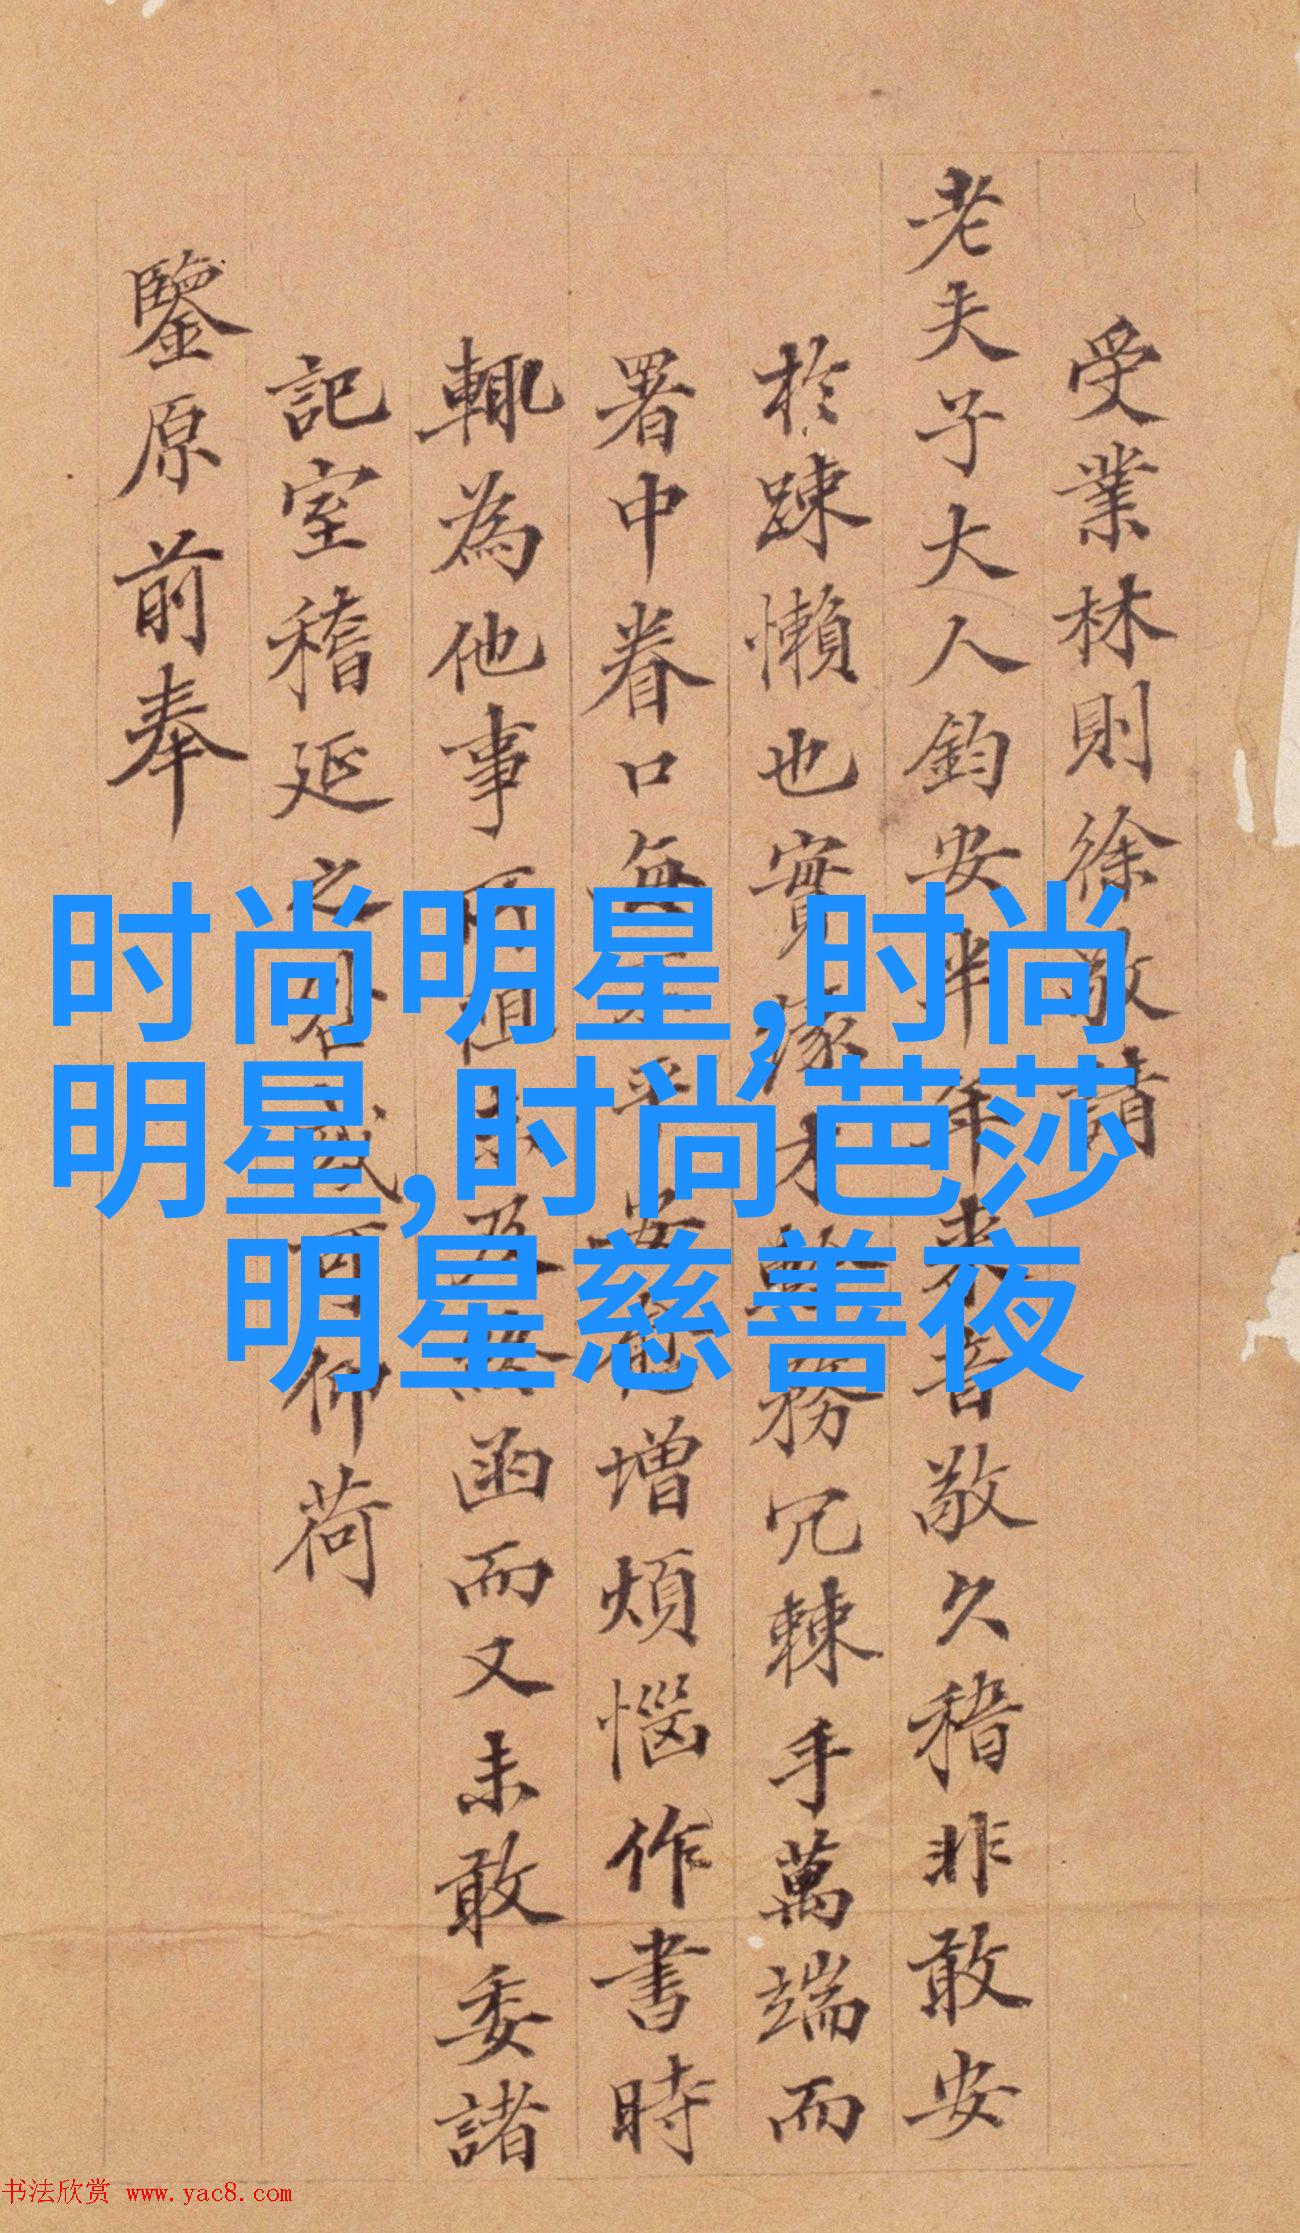 受業林則徐敬請
老夫子大人鈞安半年来音敬久稽非敢安
於踈懶也實緣才務冗棘手萬端而
署中眷口無平安增煩惱作書時
輙為他事所阻及函而又未敢委諸
記室稽延之咎可仰荷
鑒原前奉
时尚明星,时尚
明星,时尚芭莎
明星慈善夜
书法欣赏 www.yac8.com